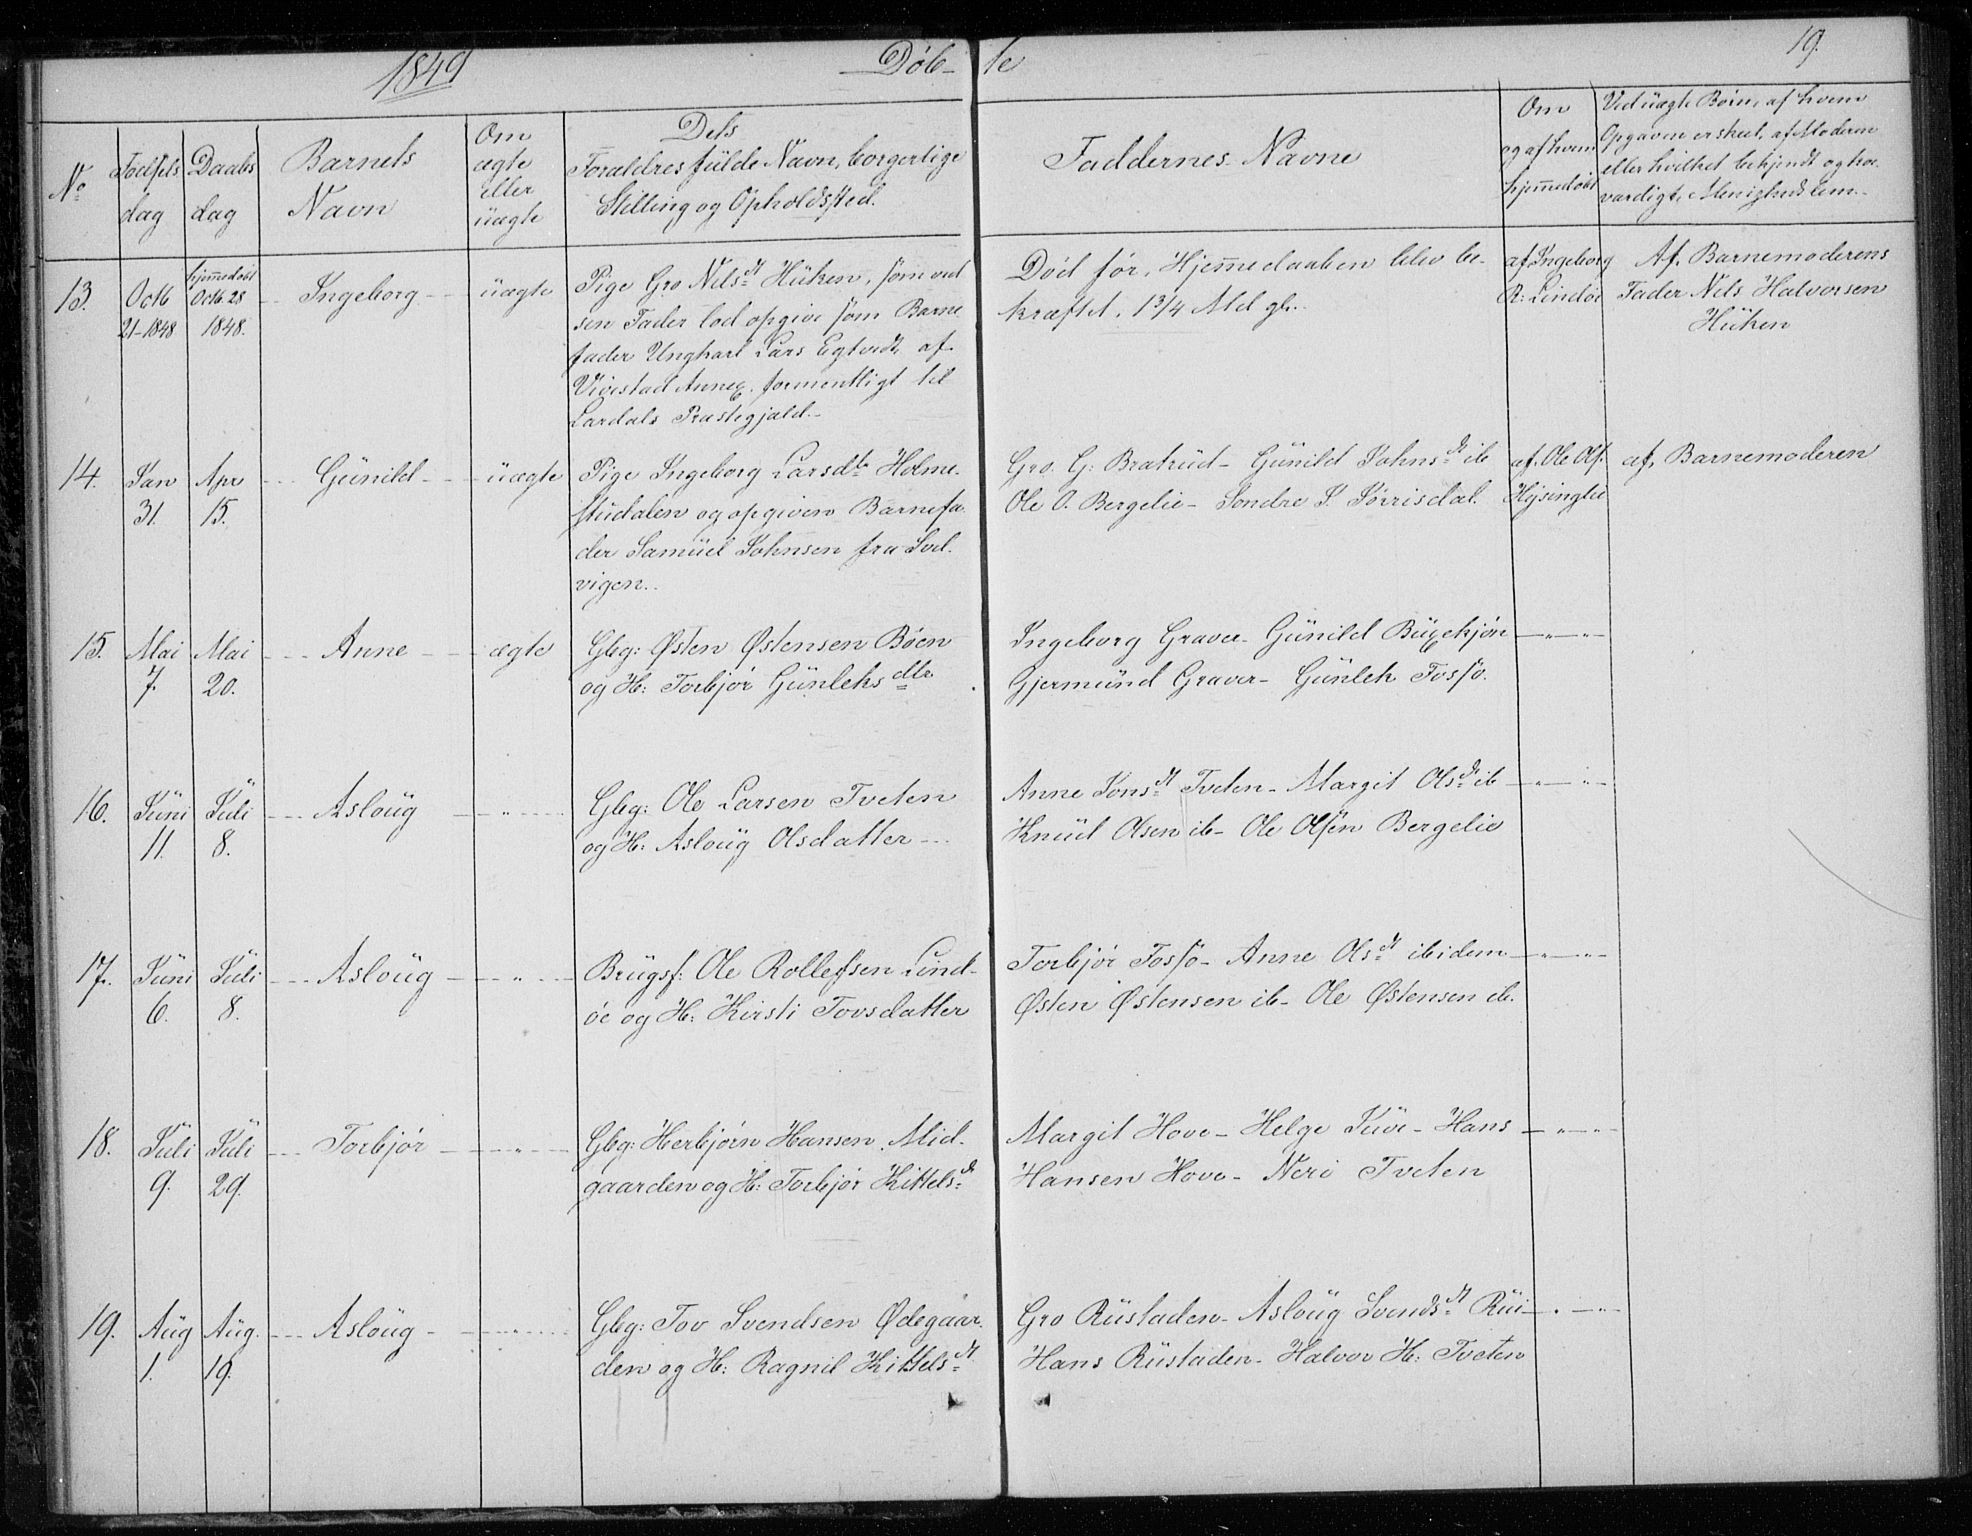 1849
Døb-te
19.
No
Fødsels dag
Daabs dag
Barnets Navn
Om ægte eller uægte
Dets Forældres fulde Navn, borgerlige Stilling og Opholdssted.
Faddernes Navne
Om og af hvem hjemmedøbt
Ved uægte Børn, af hvem Opgaven er skeet, af Moderen eller hvilket bekjendt og troværdigt Menighedslem.
13. Octb 21-1848 hjemmedøbt Octb. 28 1848. Ingeborg uægte
Pige Gro Nilsdt Huken, som ved
sen Fader lod opgive som Barne
fader Ungkarl Lars Egtvedt, af
Vivestad Annex. formentligt til
Lardals Præstegjæld.
Død før, Hjemmedaaben blev be-
kræftet, 1 3/4 Md gl.
af Ingeborg
R: Lindøe
Af Barnemoderens
Fader Nils Halvorsen
Huken
14. Jan 31. Apr 15. Gunild uægte
Pige Ingeborg Larsdtr Holme-
studalen og opgiven Barnefa-
der Samuel Johnsen fra Sol-
vigen.
Gro. G: Bratrud - Gunild Johnsdt ib
Ole O. Bergelie - Sondre J. Sørrisdal.
af. Ole Ols.
Hysinglie
af, Barnemoderen
15. Mai 7. Mai 20. Anne ægte
Gbg: Østen Østensen Bøen
og H: Torbjør Gunleksdtr
Ingeborg Graver - Gunild Buxekjøn
Gjermund Graver - Gunlek Fossø.
16. Juni 11. Juli 8. Asloug - " -
Gbg: Ole Larsen Tveten
og H: Asloug Olsdatter
Anne Jonsdt Tveten - Margit Olsdt ib
Knud Olsen ib - Ole Olsen Bergelie
17. Juni 6. Juli 8. Asloug - " -
Brugsf: Ole Rollefsen Lind-
øe og H: Kirsti Tovsdatter
Torbjør Fossø - Anne Olsdt ibidem
Østen Østensen ib - Ole Østensen ib.
18. Juli 9. Juli 29. Torbjør - " -
Gbg: Herbjørn Hansen Mid-
gaarden og H: Torbjør Kittelsdt
Margit Hove - Helge Juve - Hans
Hansen Hove - Neri Tveten
19. Aug 1. Aug. 19. Asloug - " -
Gbg: Tov Svendsen Ødegaar-
den og H: Ragnil Kittelsdt
Gro Rustaden - Asloug Svendsdt Rui
Hans Rustaden - Halvor H: Tveten